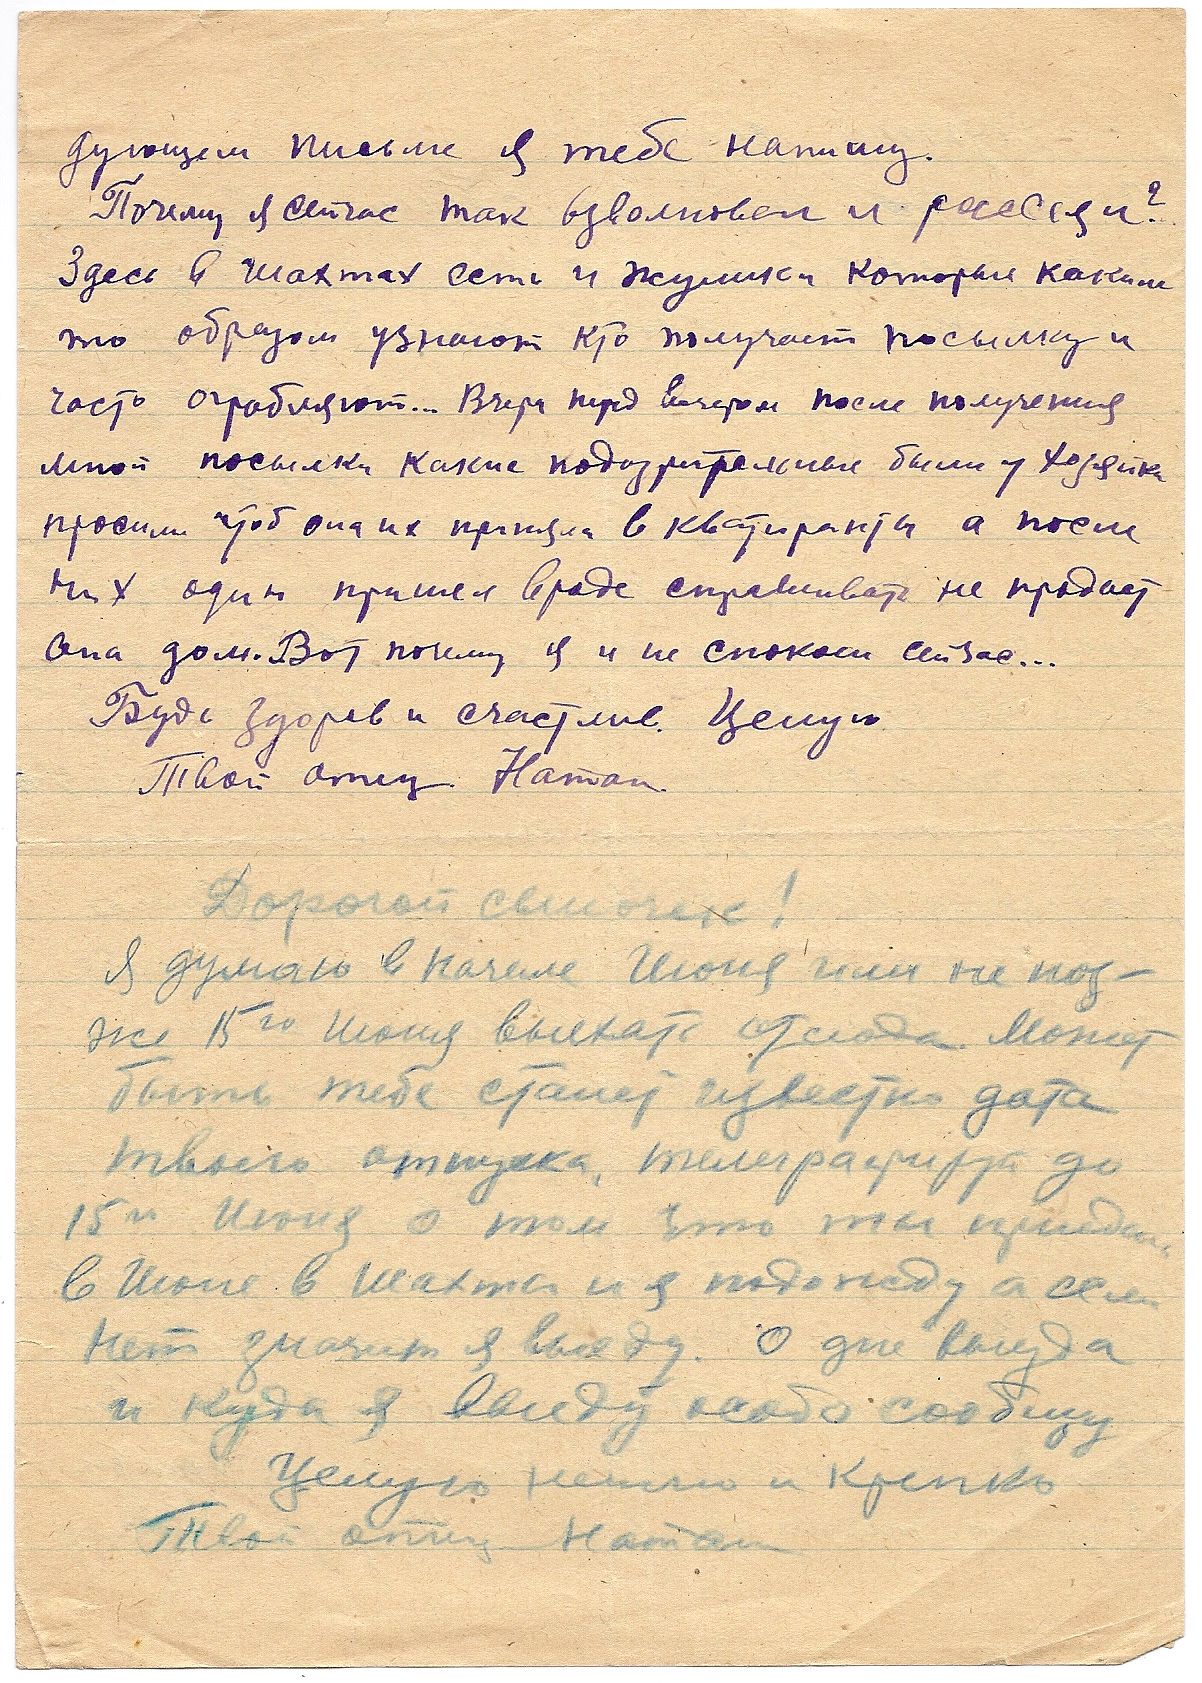 дующем письме я тебе напишу.
Почему я сейчас так взволнован и рассеян?
Здесь в Шахтах есть и жулики которые каким
то образом узнают кто получает посылку и
часто ограбляют... Вчера перед вечером после получения
мной посылки какие подозрительные были у хозяйки
просили чтоб она их приняла в кватиранты а после
них один пришел вроде спрашивать не продает
она дом. Вот почему я и не спокоен сейчас...
Будь здоров и счастлив. Целую
Твой отец Натан.
Дорогой сыночек!
Я думаю в начале Июня или не поз-
же 15го Июня выехать отсюда. Может
быть тебе станет известно дата
твоего отпуска, телеграфируй до
15го Июня о том что ты приедешь
в Июне в Шахты и я подожду а если
нет значит я выеду. О дне выезда
и куда я выеду особо сообщу
Целую нежно и крепко
Твой отец Натан